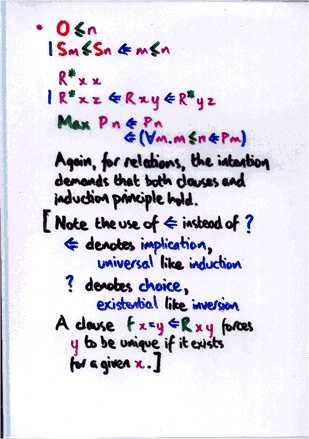 • O ≤ n
| Sm ≤ Sn ⇐ m ≤ n
R* x x
| R* x z ⇐ R x y ⇐ R* y z
Max P n ⇐ P n
⇐ (∀m. m ≤ n ⇐ P m)
Again, for relations, the intention
demands that both clauses and
induction principle hold.
[ Note the use of ⇐ instead of ?
⇐ denotes implication,
universal like induction
? denotes choice,
existential like inversion
A clause f x = y ⇐ R x y forces
y to be unique if it exists
for a given x. ]